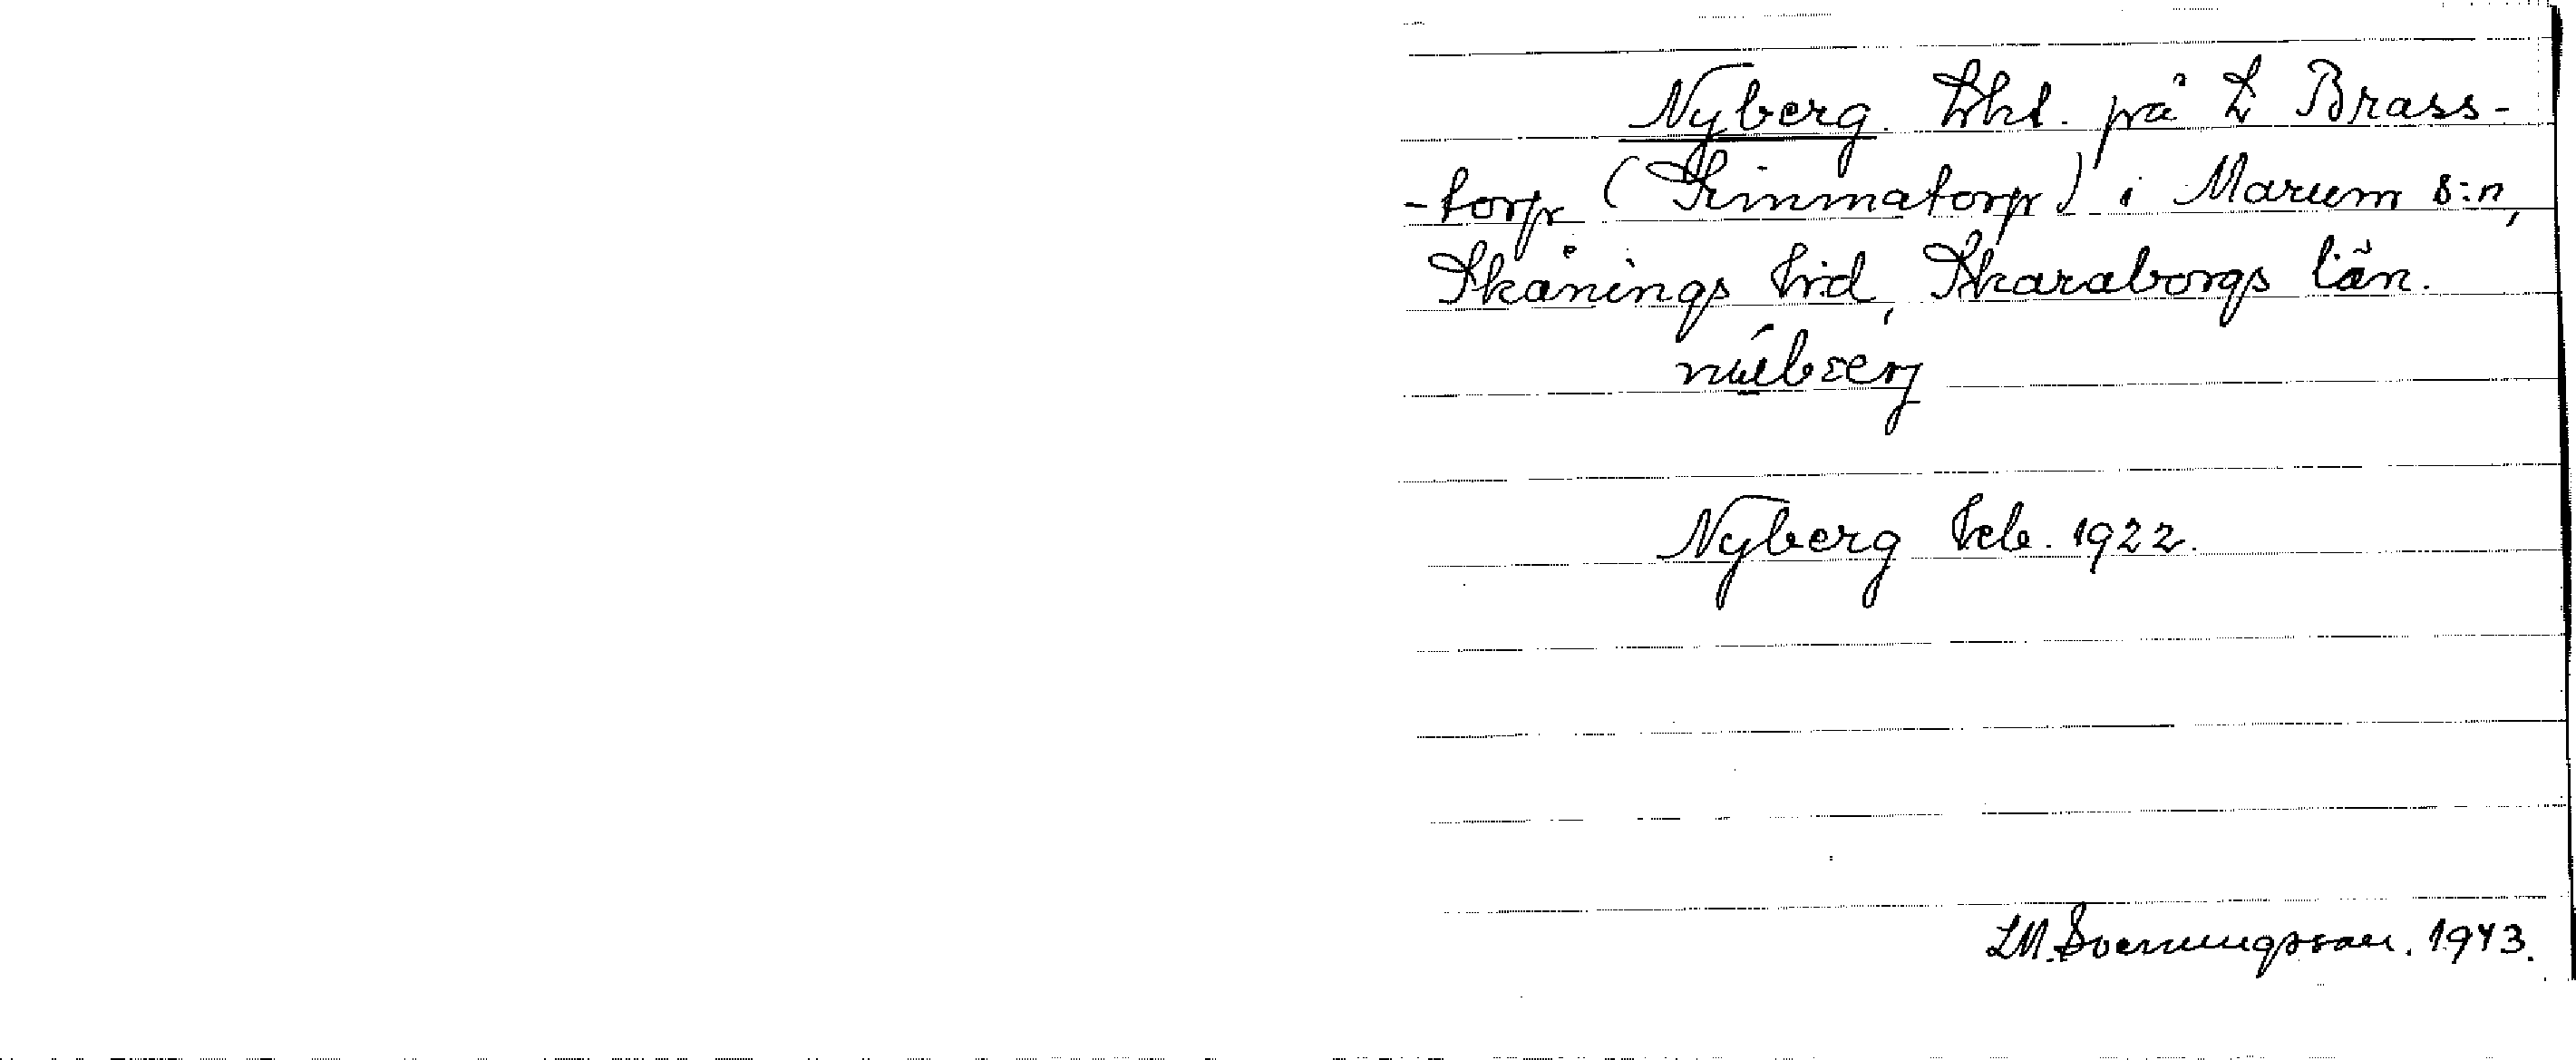 Nyberg. Lht. på L Brass-
-torp (Simmatorp) i Marum s:n,
Skånings hd, Skaraborgs län.
Nyberg Feb. 1922.
LM. Svenungsson. 1943.